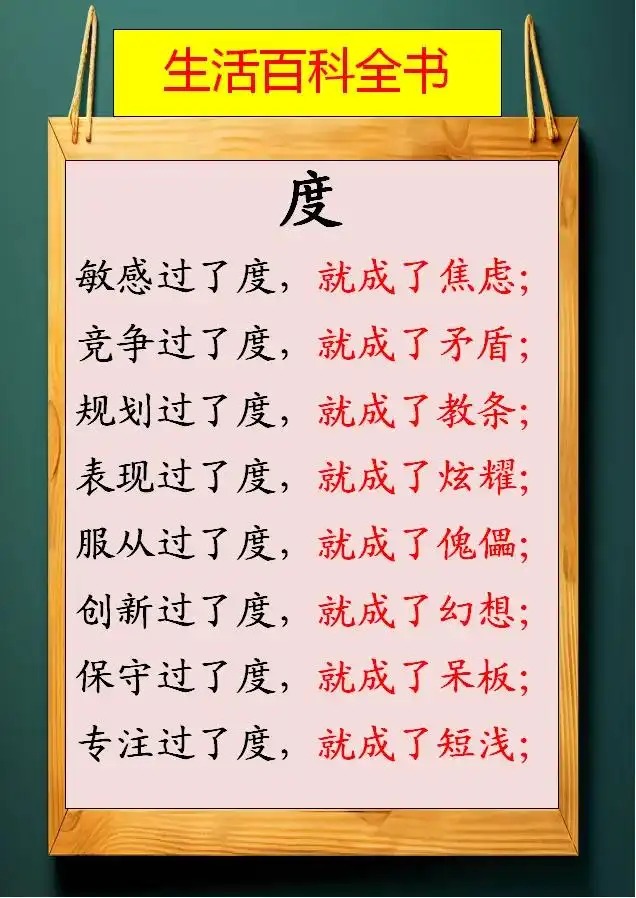 生活百科全书
度
敏感过了度，就成了焦虑；
竞争过了度，就成了矛盾；
规划过了度，就成了教条；
表现过了度，就成了炫耀；
服从过了度，就成了傀儡；
创新过了度，就成了幻想；
保守过了度，就成了呆板；
专注过了度，就成了短浅；